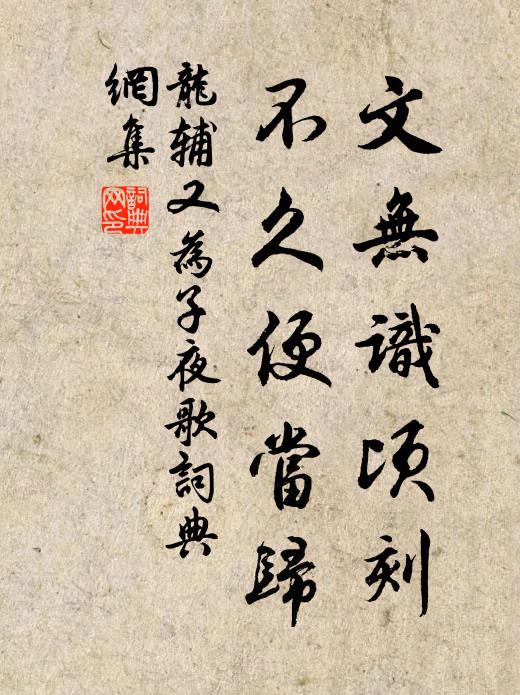 文無識頃刻
不久便當歸
龍輔又為子夜歌詞典
網集
詞典
网印